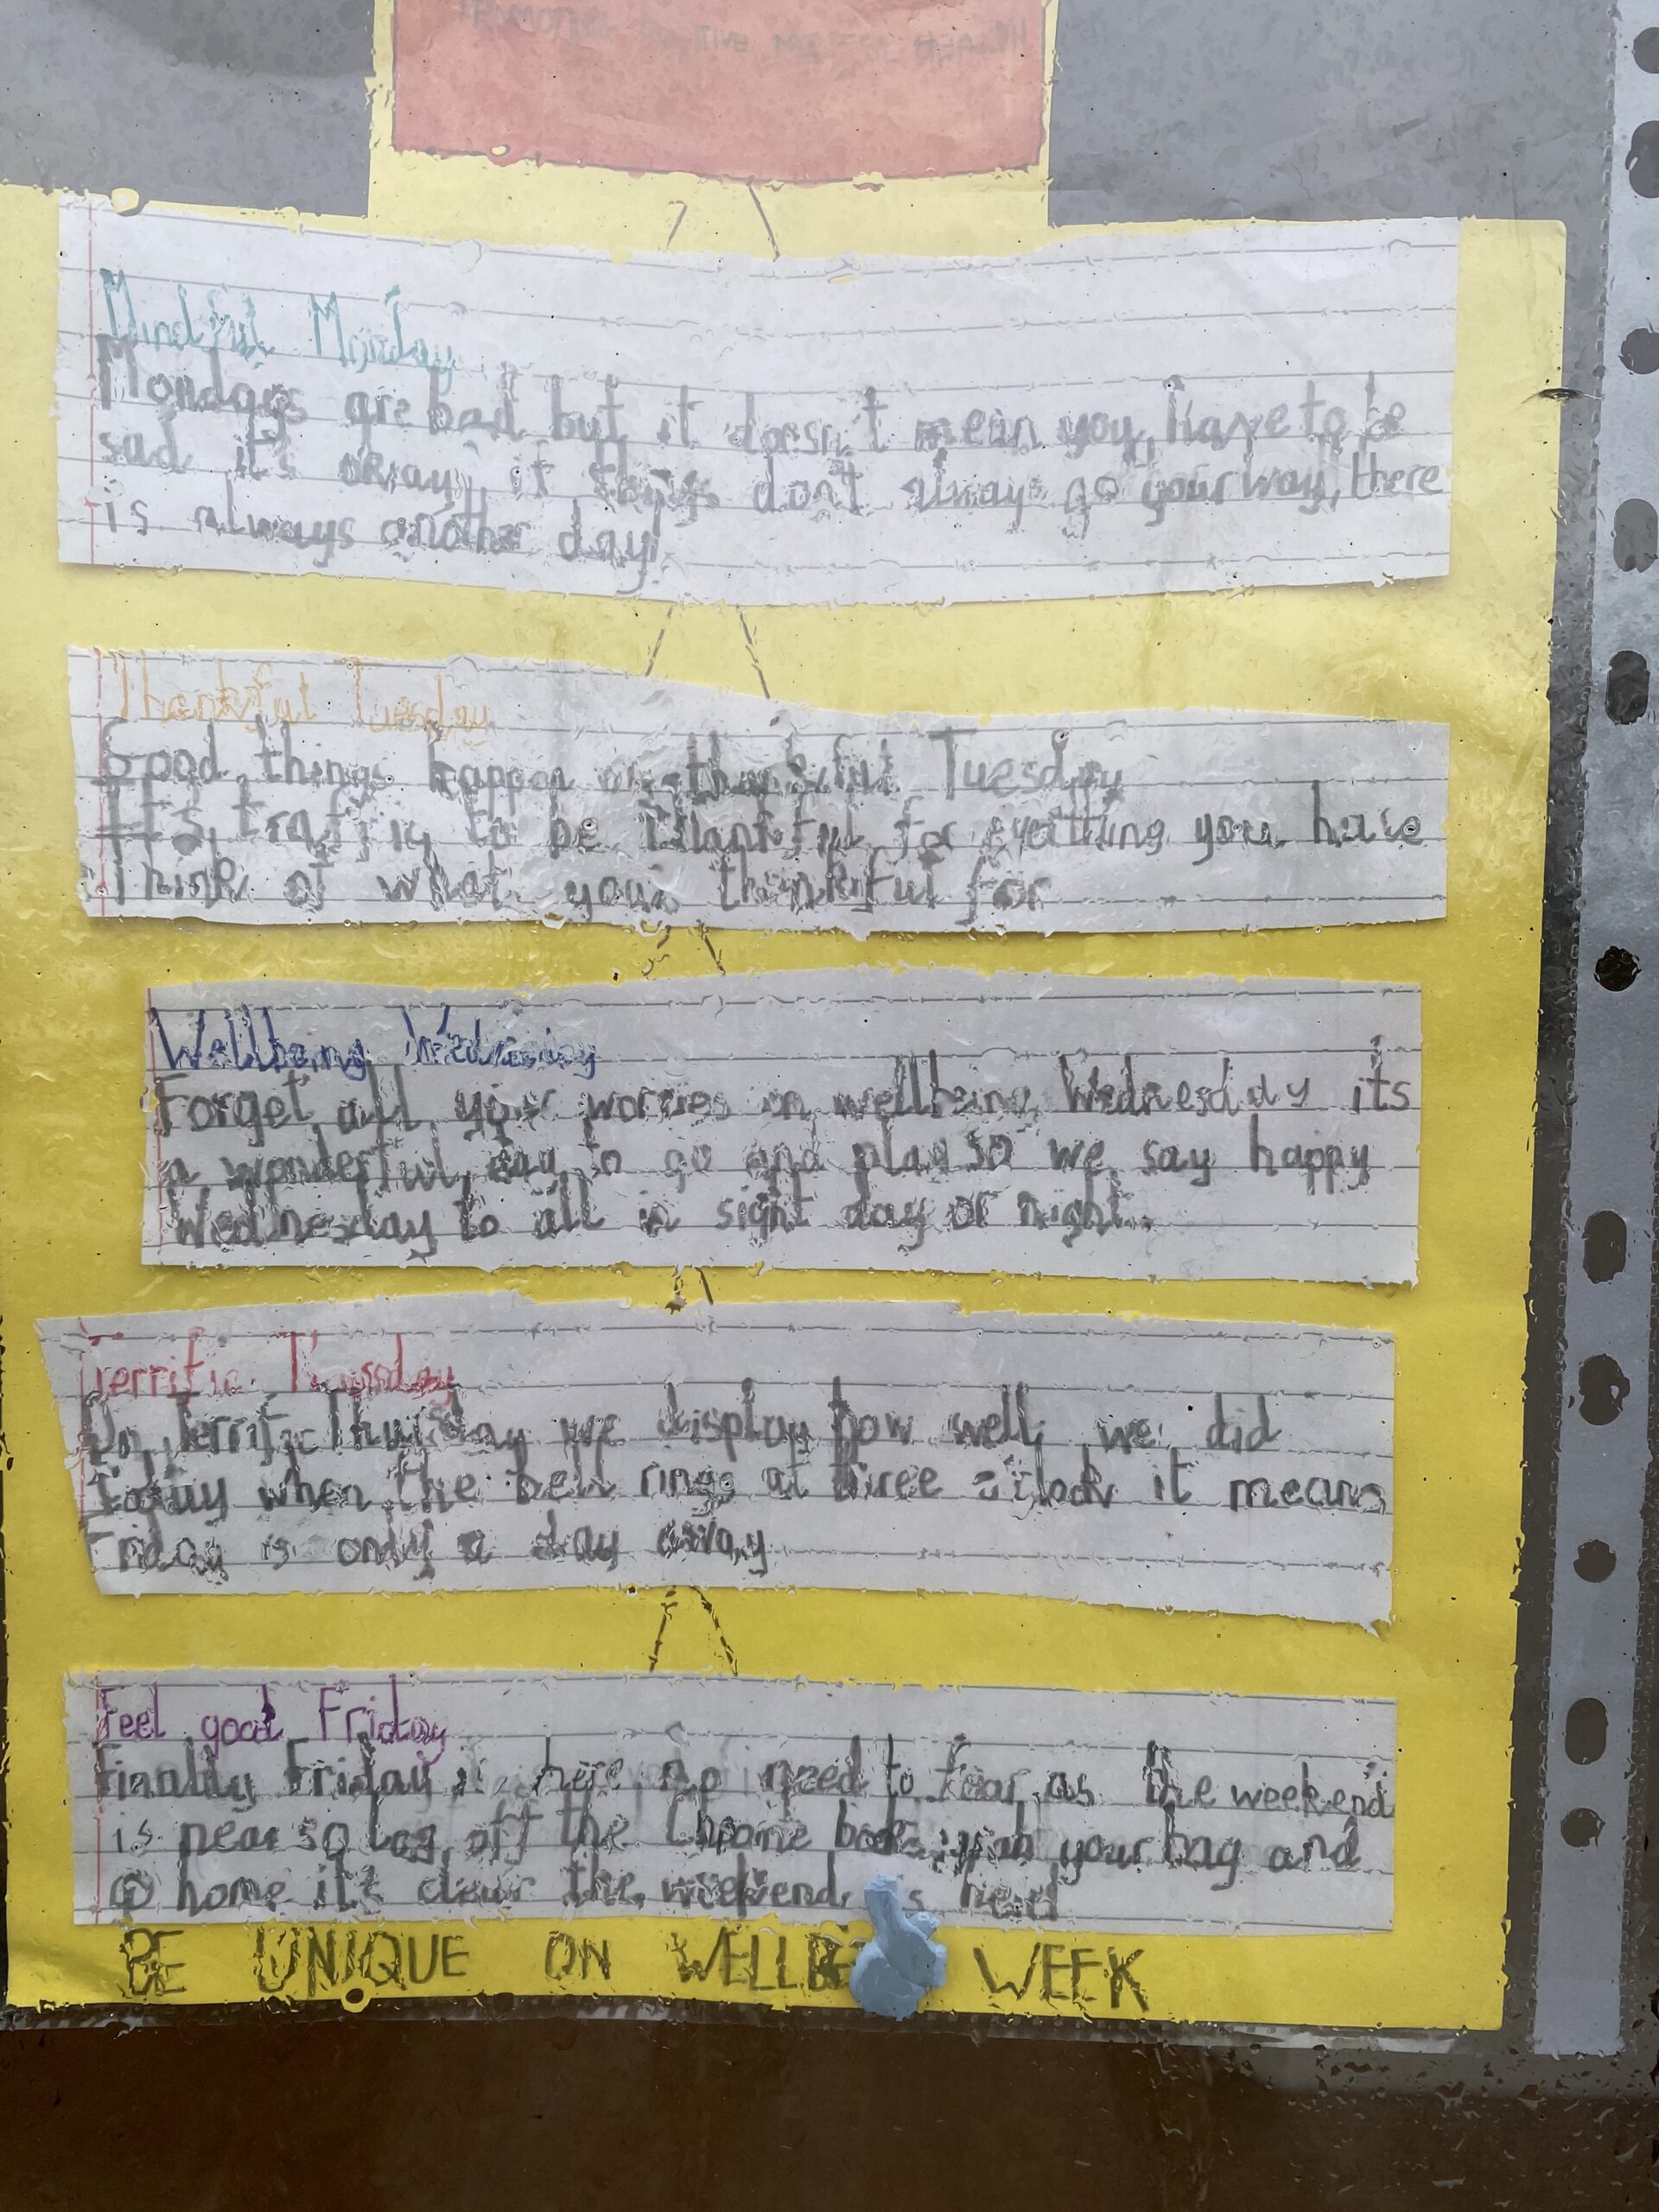 PROMOTING POSITIVE MENTAL HEALTH
Mindful Monday
Mondays are bad but it doesn't mean you have to be
sad it's okay if things don't always go your way, there
is always another day!
Thankful Tuesday
Good things happen on thankful Tuesday
It's to be thankful for everything you have
Think of what your thankful for
Wellbeing Wednesday
Forget all your worries on wellbeing Wednesday its
a wonderful day to go and play so we say happy
Wednesday to all in sight day or night.
Terrific Thursday
On Terrific Thursday we display how well we did
today when the bell rings at three o'clock it means
Friday is only a day away
Feel good Friday
Finally Friday is here no need to fear as the weekend
is near so log off the Chrome book grab your bag and
go home it's clear the weekend is
BE UNIQUE ON WEEK